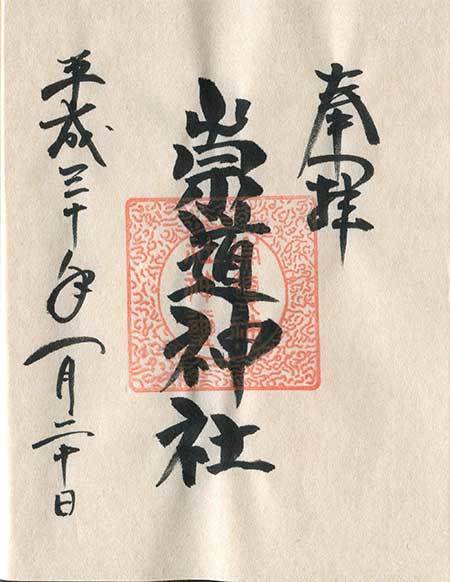 奉拝
崇道神社
平成三十年一月二十日